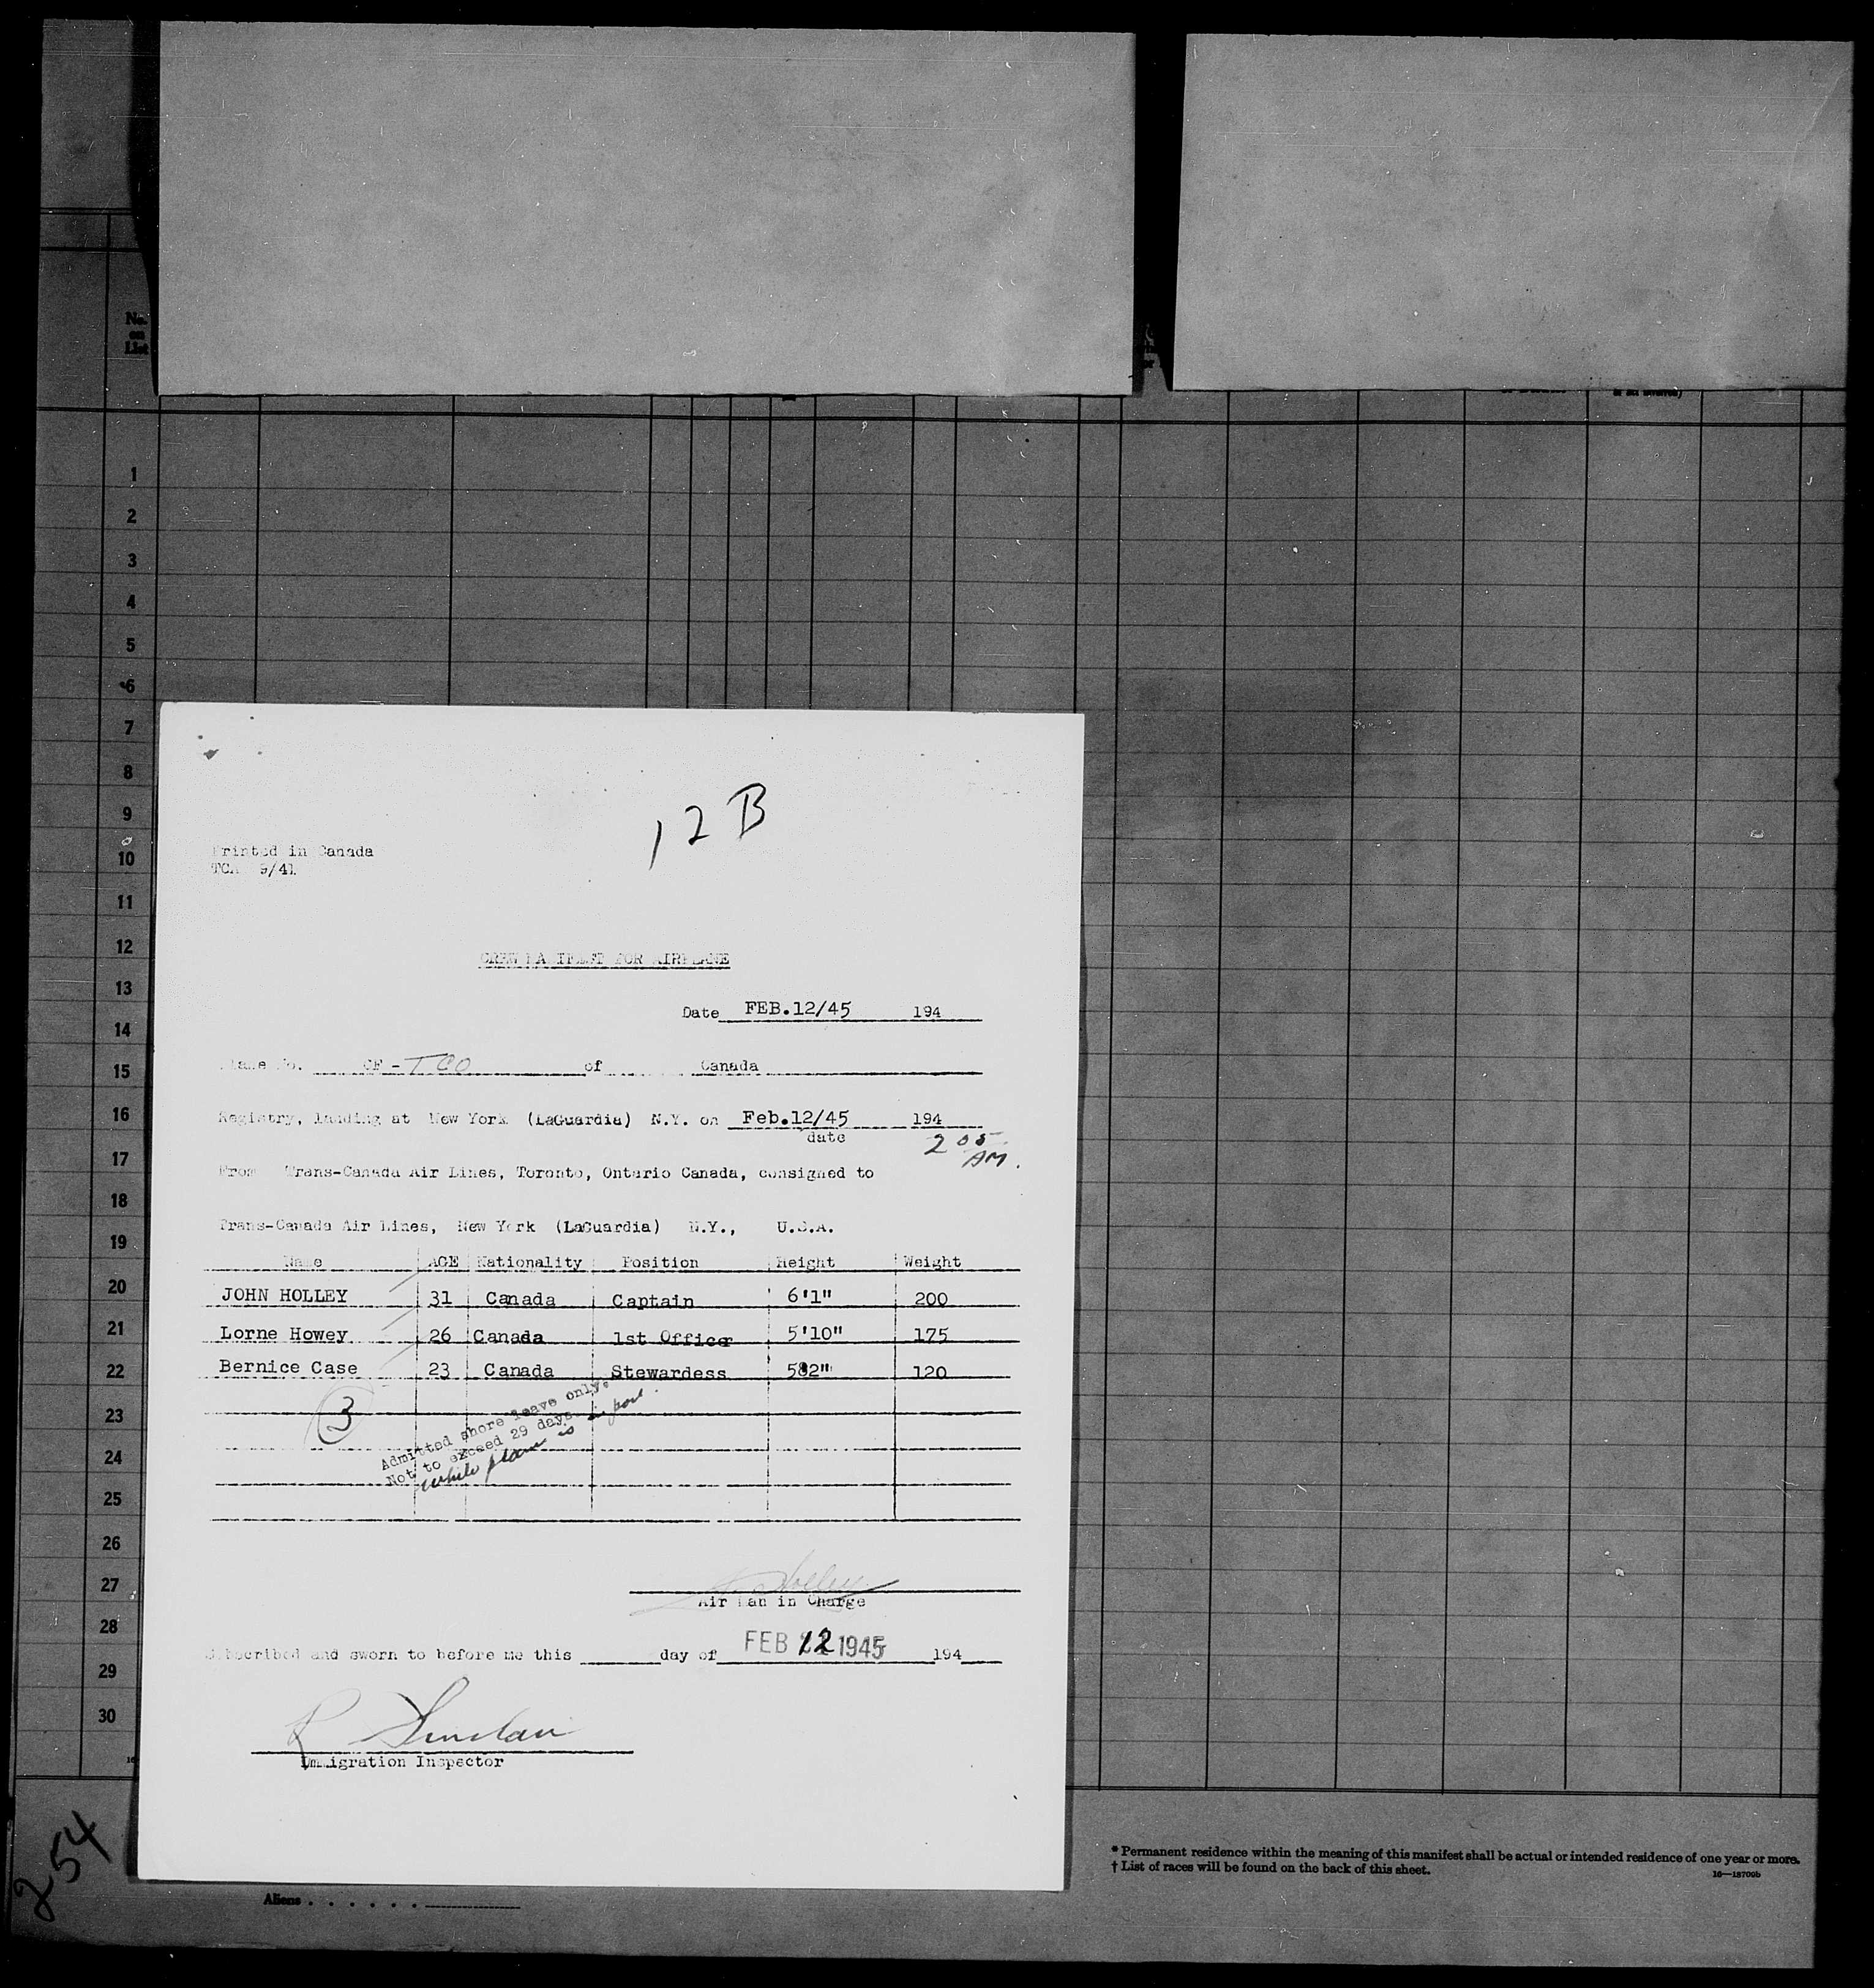 No.
on
List
1
2
3
4
5
6
7
8
9
10
11
12
13
14
15
16
17
18
19
20
21
22
23
24
25
26
27
28
29
30
12 B
Printed in Canada
TCA 9/41
CREW MANIFEST FOR AIRPLANE
Date FEB.12/45 194
Plane No. CF - TCO of Canada
Registry, landing at New York (LaGuardia) N.Y. on Feb.12/45 194
date
2 05 AM.
From Trans-Canada Air Lines, Toronto, Ontario Canada, consigned to
Trans-Canada Air Lines, New York (LaGuardia) N.Y., U.S.A.
Name AGE Nationality Position Height Weight
JOHN HOLLEY 31 Canada Captain 6'1" 200
Lorne Howey 26 Canada 1st Officer 5'10" 175
Bernice Case 23 Canada Stewardess 582" 120
3
Admitted shore leave only.
Not to exceed 29 days
while plane is in port.
Air Man in Charge
Subscribed and sworn to before me this day of FEB 12 1945 194
R Sinclair
Immigration Inspector
254
Aliens . . . . . .
* Permanent residence within the meaning of this manifest shall be actual or intended residence of one year or more.
† List of races will be found on the back of this sheet.
16—18700b